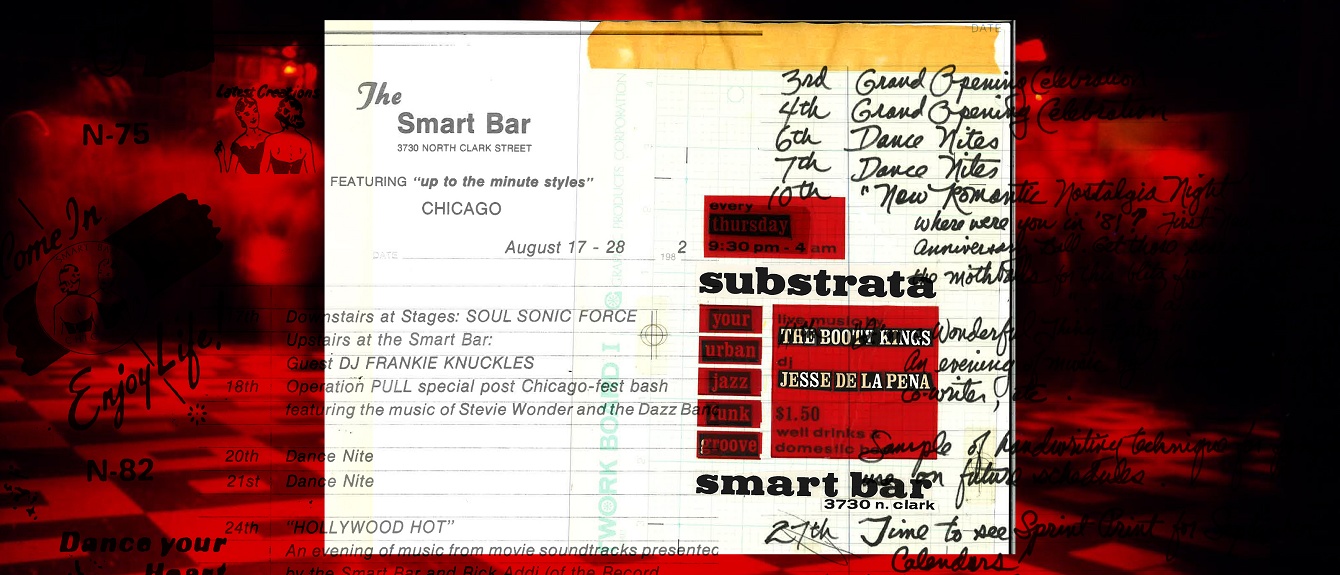 Latest Creations
N-75
Come In
Enjoy Life!
N-82
Dance your
Heart
The
Smart Bar
3730 NORTH CLARK STREET
FEATURING "up to the minute styles"
CHICAGO
DATE
August 17 - 28 2
198
17th Downstairs at Stages: SOUL SONIC FORCE
Upstairs at the Smart Bar:
Guest DJ FRANKIE KNUCKLES
18th Operation PULL special post Chicago-fest bash
featuring the music of Stevie Wonder and the Dazz Band
20th Dance Nite
21st Dance Nite
24th "HOLLYWOOD HOT"
An evening of music from movie soundtracks presented
by the Smart Bar and Rick Addi (of the Record
PRODUCTS CORPORATION
WORK BOARD I
DATE
3rd Grand Opening Celebration
4th Grand Opening Celebration
6th Dance Nites
7th Dance Nites
10th "New Romantic Nostalgia Night
where were you in '81? First
anniversary
every
thursday
9:30 pm - 4 am
substrata
your
urban
jazz
funk
groove
live music by
THE BOOTY KINGS
dj
JESSE DE LA PENA
$1.50
well drinks &
domestic
smart bar
3730 n. clark
Wonderful
An evening
co-writer, etc.
Sample of handwriting technique
use on future schedules
27th Time to see Sprint Print for
Calendars